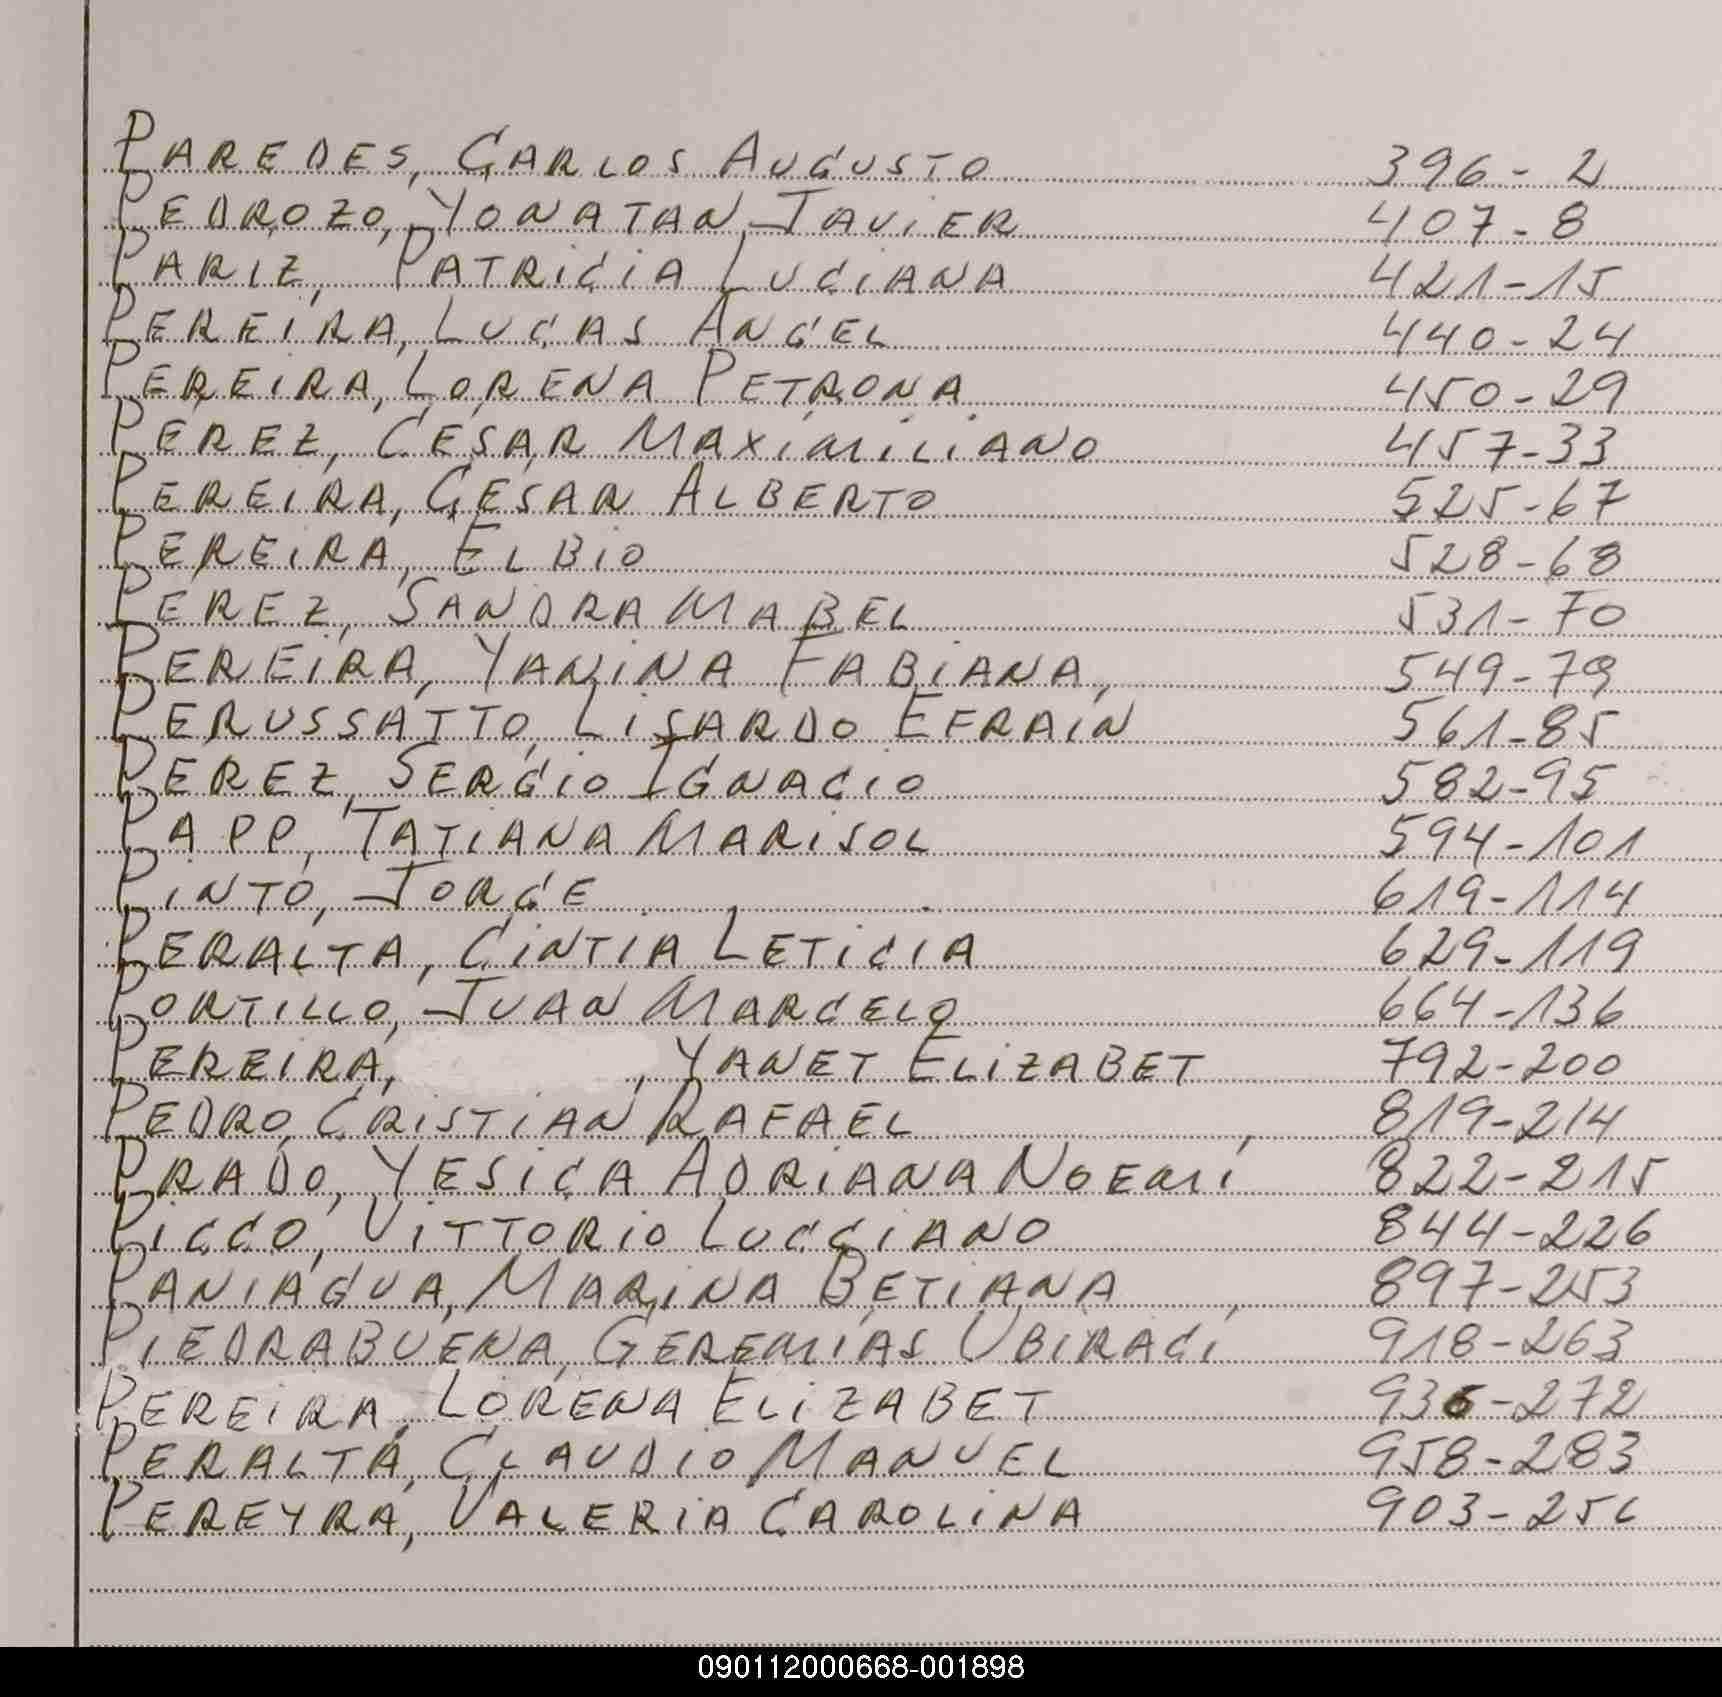 PAREDES, CARLOS AUGUSTO 396-2
PEDROZO, YONATAN JAVIER 407-8
PARIZ, PATRICIA LUCIANA 421-15
PEREIRA, LUCAS ANGEL 440-24
PEREIRA, LORENA PETRONA 450-29
PEREZ, CESAR MAXIMILIANO 457-33
PEREIRA, CESAR ALBERTO 525-67
PEREIRA, ELBIO 528-68
PEREZ, SANDRA MABEL 531-70
PEREIRA, YANINA FABIANA, 549-79
PERUSSATTO, LISARDO EFRAIN 561-85
PEREZ, SERGIO IGNACIO 582-95
PAPP, TATIANA MARISOL 594-101
PINTO, JORGE 619-114
PERALTA, CINTIA LETICIA 629-119
PORTILLO, JUAN MARCELO 664-136
PEREIRA, , YANET ELIZABET 792-200
PEDRO, CRISTIAN RAFAEL 819-214
PRADO, YESICA ADRIANA NOEMÍ 822-215
PICCO, VITTORIO LUCCIANO 844-226
PANIAGUA, MARINA BETIANA 897-253
PIEDRABUENA, GEREMÍAS UBIRACI 918-263
PEREIRA, LORENA ELIZABET 936-272
PERALTA, CLAUDIO MANUEL 958-283
PEREYRA, VALERIA CAROLINA 903-256
090112000668-001898